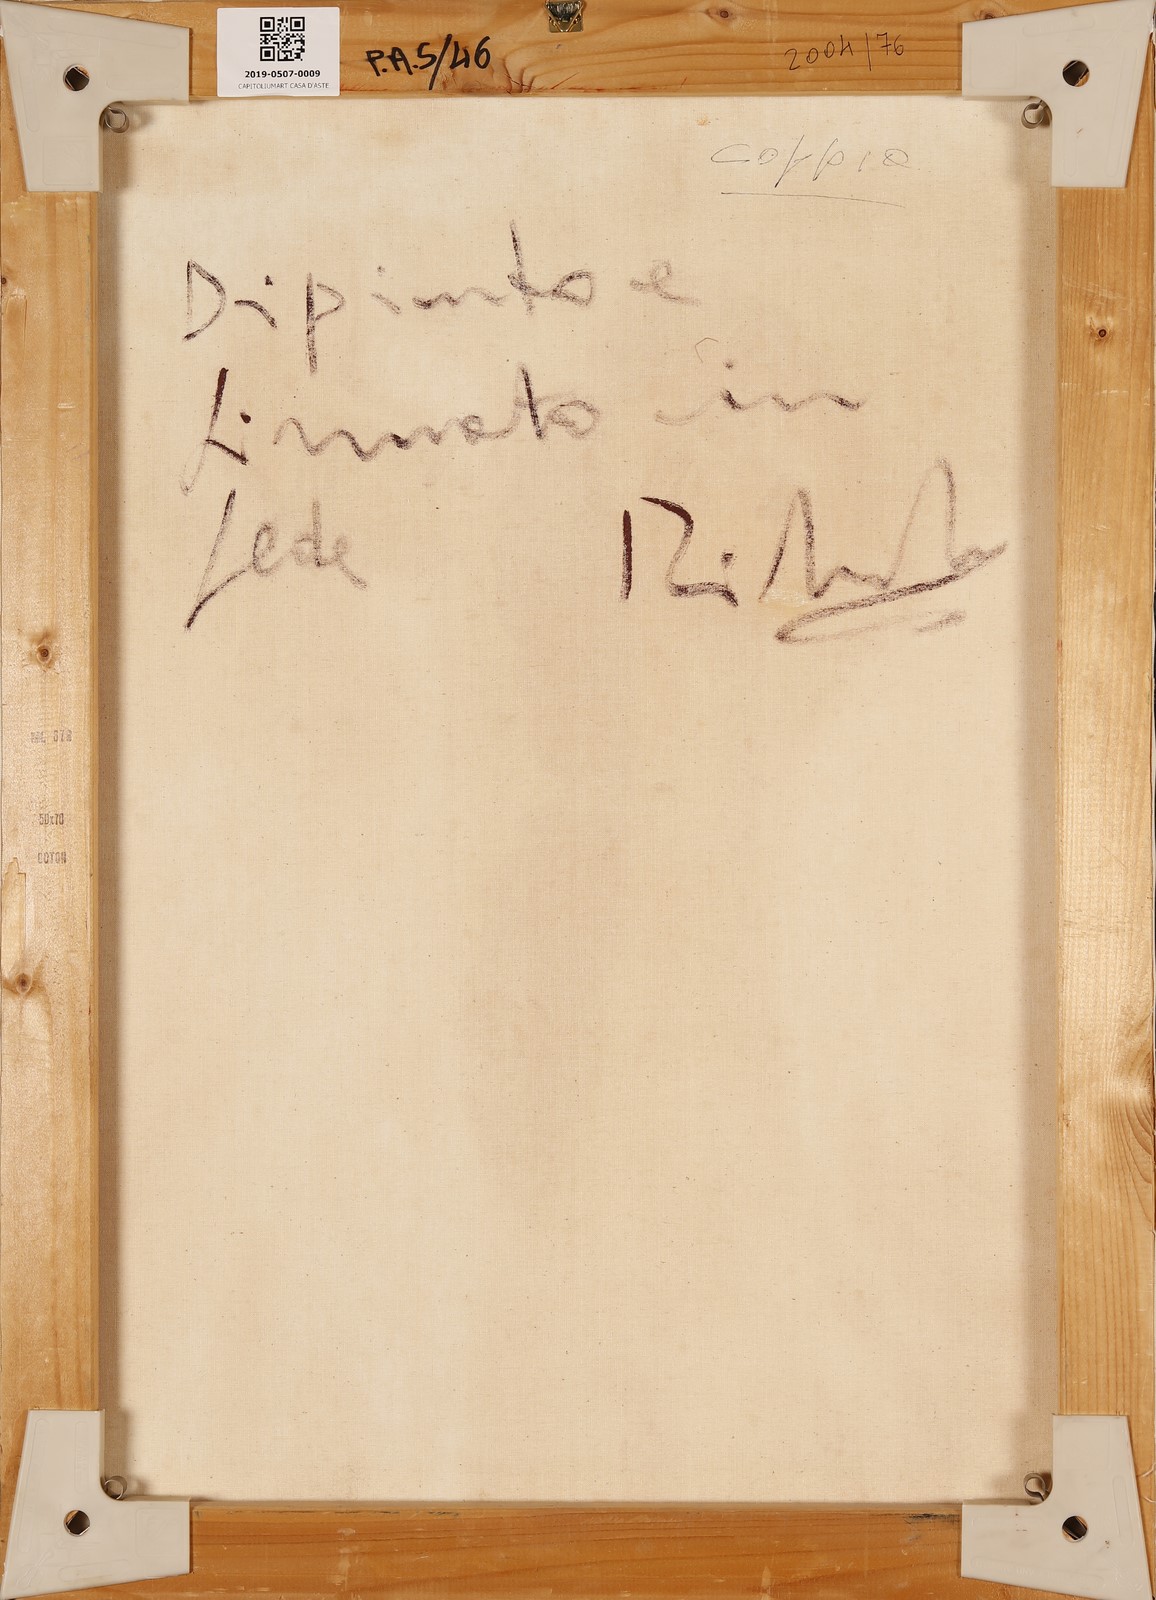 2019-0507-0009
CAPITOLIUMART CASA D'ASTE
P.A.5/46
2004/76
coppia
Dipinto e
firmato in
fede
50x70
COTON